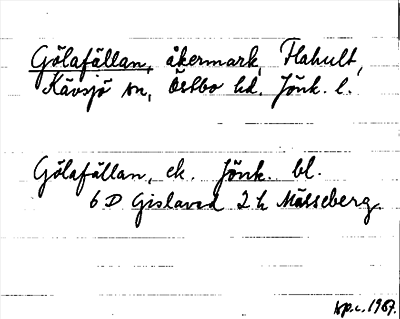 Gölafällan, åkermark, Flahult,
Kävsjö sn, Östbo hd. Jönk. l.
Gölafällan, ek. Jönk. bl.
6 D Gislaved 2 h Mässeberg
1967.